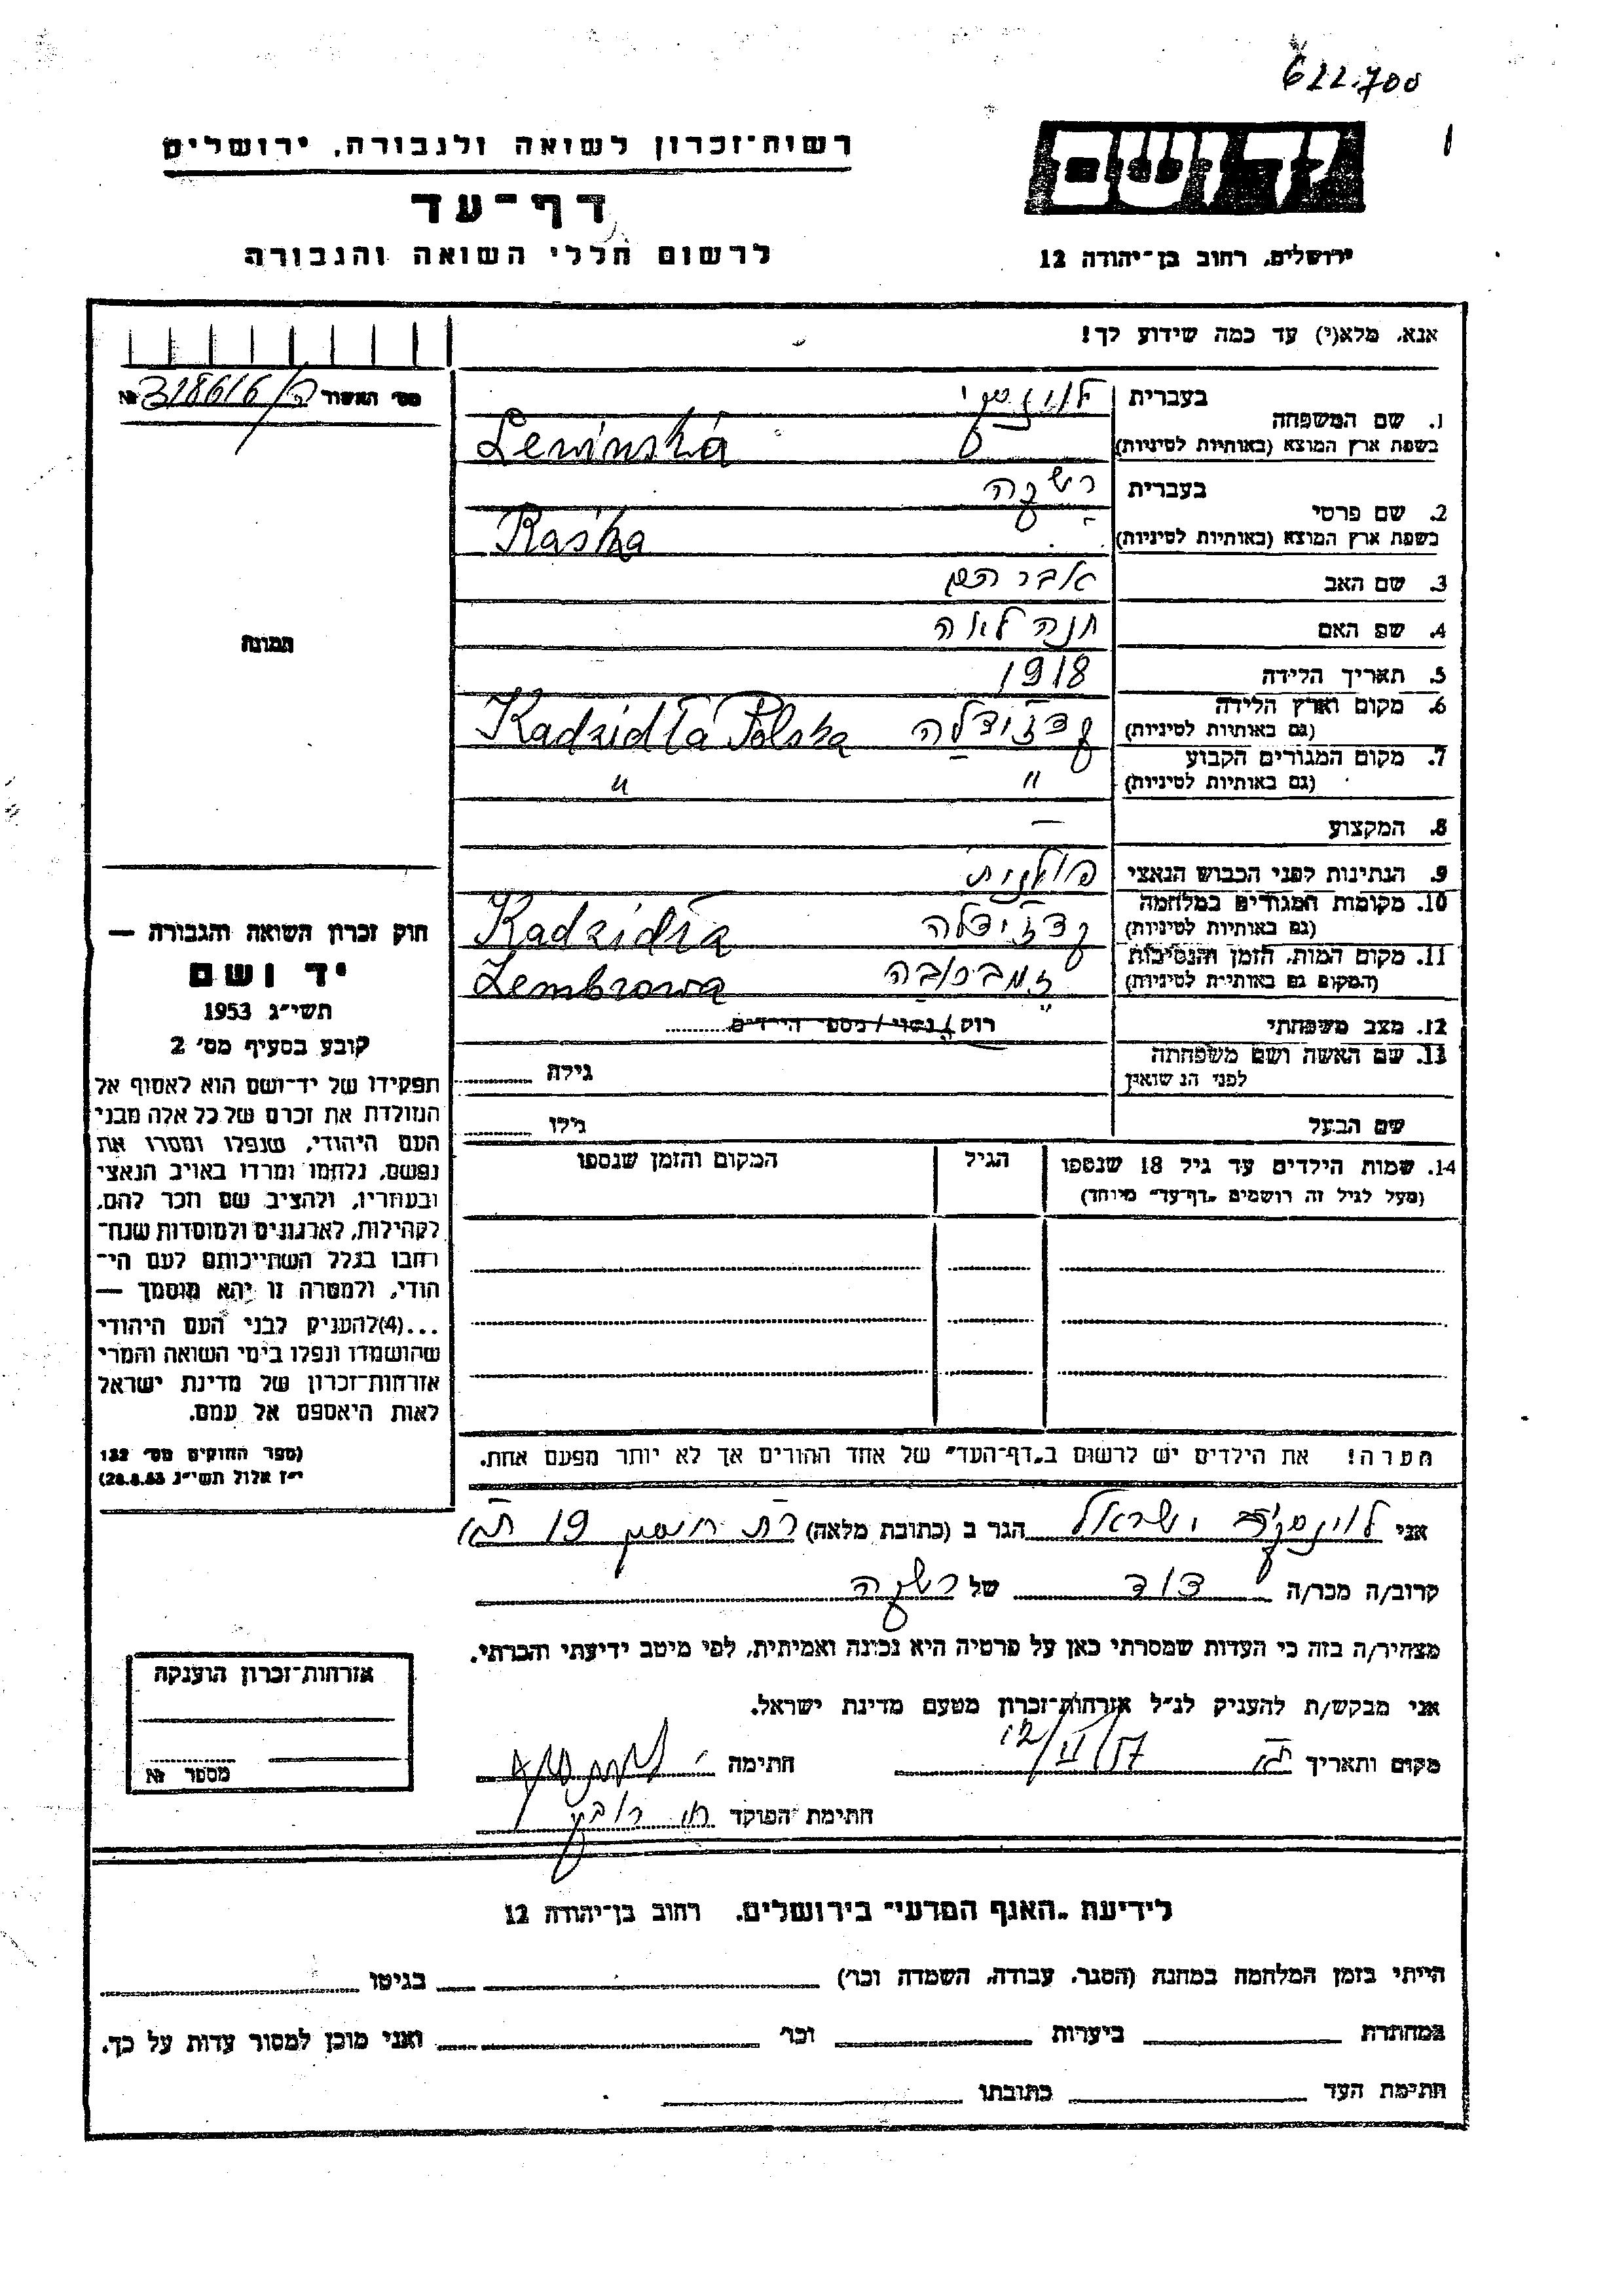 622.700
רשות־זכרון לשואה ולגבורה, ירושלים
יד ושם
דף־עד
לרשום חללי השואה והגבורה
ירושלים, רחוב בן־יהודה 12
אנא, מלא(י) עד כמה שידוע לך!
מס׳ האשור 318616/ №
1. שם המשפחה בעברית
בשפת ארץ המוצא (באותיות לטיניות) Lewinska
2. שם פרטי בעברית רשקה
בשפת ארץ המוצא (באותיות לטיניות) Raśka
3. שם האב אברהם
4. שם האם חנה לאה
5. תאריך הלידה 1918
6. מקום וארץ הלידה (גם באותיות לטיניות) קדזידלה Kadzidła Polska
7. מקום המגורים הקבוע (גם באותיות לטיניות) " "
8. המקצוע —
9. הנתינות לפני הכבוש הנאצי פולנית
10. מקומות המגורים במלחמה (גם באותיות לטיניות) קדזידלה Kadzidła
11. מקום המות, הזמן והנסיבות (המקום גם באותיות לטיניות) זמברובה Zembrowa
12. מצב משפחתי רוק/נשוי/מספר הילדים
13. שם האשה ושם משפחתה לפני הנשואין גילה
שם הבעל גילו
14. שמות הילדים עד גיל 18 שנספו הגיל המקום והזמן שנספו
(מעל לגיל זה רושמים „דף־עד״ מיוחד)
הערה! את הילדים יש לרשום ב„דף־העד״ של אחד ההורים אך לא יותר מפעם אחת.
תמונה
חוק זכרון השואה והגבורה —
יד ושם
תשי״ג 1953
קובע בסעיף מס׳ 2
תפקידו של יד־ושם הוא לאסוף אל
המולדת את זכרם של כל אלה מבני
העם היהודי, שנפלו ומסרו את
נפשם, נלחמו ומרדו באויב הנאצי
ובעוזריו, ולהציב שם וזכר להם,
לקהילות, לארגונים ולמוסדות שנח־
רבו בגלל השתייכותם לעם הי־
הודי, ולמטרה זו יהא מוסמך —
...(4)להעניק לבני העם היהודי
שהושמדו ונפלו בימי השואה והמרי
אזרחות־זכרון של מדינת ישראל
לאות היאספם אל עמם.
(ספר החוקים מס׳ 132
י״ז אלול תשי״ג 28.8.53)
אני לוינסקי ישראל הגר ב (כתובת מלאה) 19 ת״א
קרוב/ה מכר/ה דוד של רשקה
מצהיר/ה בזה כי העדות שמסרתי כאן על פרטיה היא נכונה ואמיתית, לפי מיטב ידיעתי והכרתי.
אני מבקש/ת להעניק לנ״ל אזרחות־זכרון מטעם מדינת ישראל.
מקום ותאריך ת״א 12/II/57 חתימה
חתימת הפוקד
אזרחות־זכרון הוענקה
מספר №
לידיעת „האגף המדעי״ בירושלים, רחוב בן־יהודה 12
הייתי בזמן המלחמה במחנה (הסגר, עבודה, השמדה וכר׳) בגיטו
במחתרת ביערות וכר׳ ואני מוכן למסור עדות על כך.
חתימת העד כתובתו